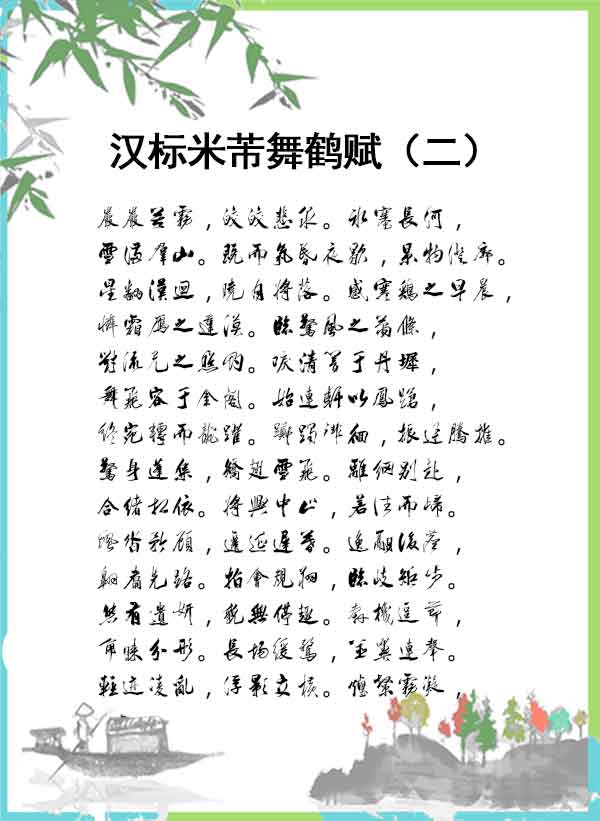 汉标米芾舞鹤赋（二）
嚴嚴苦霧，皎皎悲泉。冰塞長河，
雪滿羣山。既而氛昏夜歇，景物澄廓。
星翻漢迴，曉月將落。感寒鷄之早晨，
憐霜鴈之違漠。臨驚風之蕭條，
對流光之照灼。唳清響于丹墀，
舞飛容于金閣。始連軒以鳳蹌，
終宛轉而龍躍。躑躅徘徊，振迅騰摧。
驚身蓬集，矯翅雪飛。離綱別赴，
合緒相依。將興中止，若往而歸。
颯沓矜顧，遷延遲暮。逸翮後塵，
翱翥先路。指會規翔，臨岐矩步。
有遺妍，貌無停趣。奔機逗節，
角睞分形。長揚緩騖，並翼連聲。
輕迹凌亂，浮影交橫。霧凝，